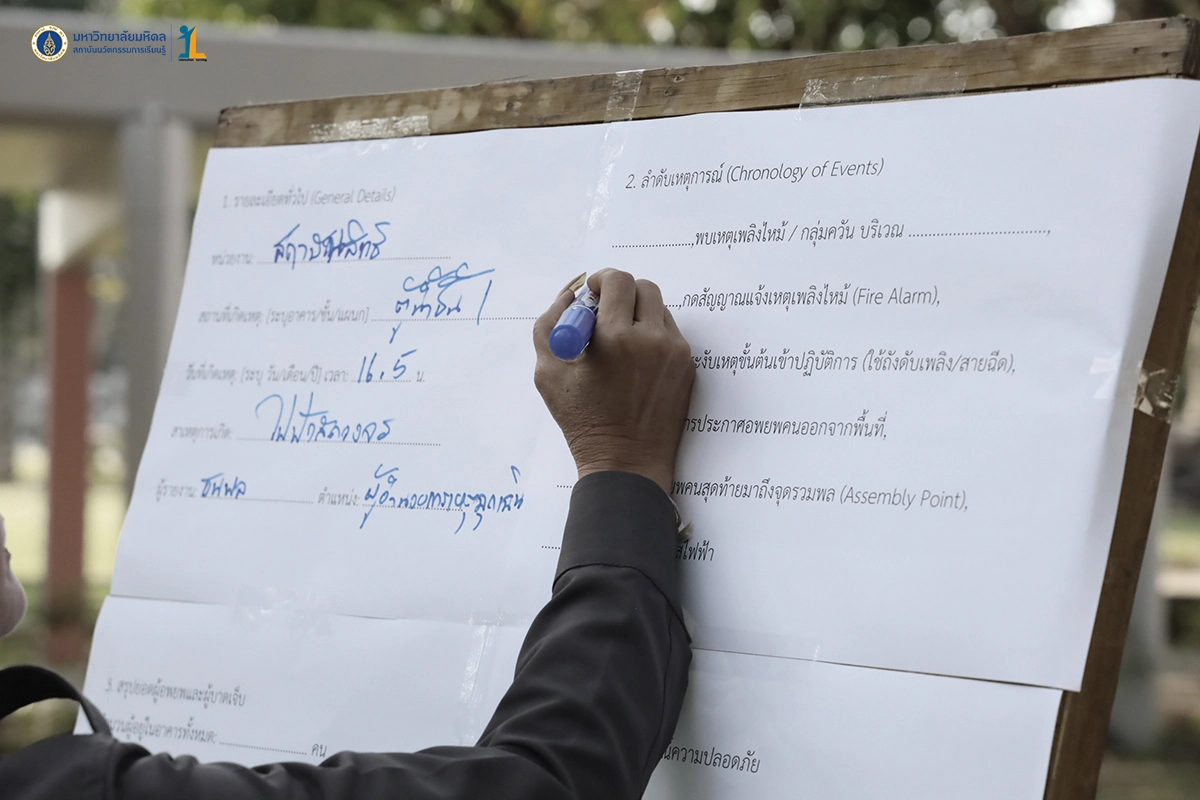 มหาวิทยาลัยมหิดล
สถาบันนวัตกรรมการเรียนรู้
1. รายละเอียดทั่วไป (General Details)
หน่วยงาน:
สถานที่เกิดเหตุ: [ระบุอาคาร/ชั้น/แผนก] ตู้น้ำชั้น 1
วันที่เกิดเหตุ: [ระบุ วัน/เดือน/ปี] เวลา: 11.5 น.
สาเหตุการเกิด: ไฟฟ้าลัดวงจร
ผู้รายงาน: ชนพล ตำแหน่ง: ผู้อำนวยการเหตุฉุกเฉิน
2. ลำดับเหตุการณ์ (Chronology of Events)
,พบเหตุเพลิงไหม้ / กลุ่มควัน บริเวณ ,
,กดสัญญาณแจ้งเหตุเพลิงไหม้ (Fire Alarm),
ระงับเหตุขั้นต้นเข้าปฏิบัติการ (ใช้ถังดับเพลิง/สายฉีด),
ารประกาศอพยพคนออกจากพื้นที่,
พคนสุดท้ายมาถึงจุดรวมพล (Assembly Point),
สไฟฟ้า
3. สรุปยอดผู้อพยพและผู้บาดเจ็บ
จำนวนผู้อยู่ในอาคารทั้งหมด: คน
ความปลอดภัย